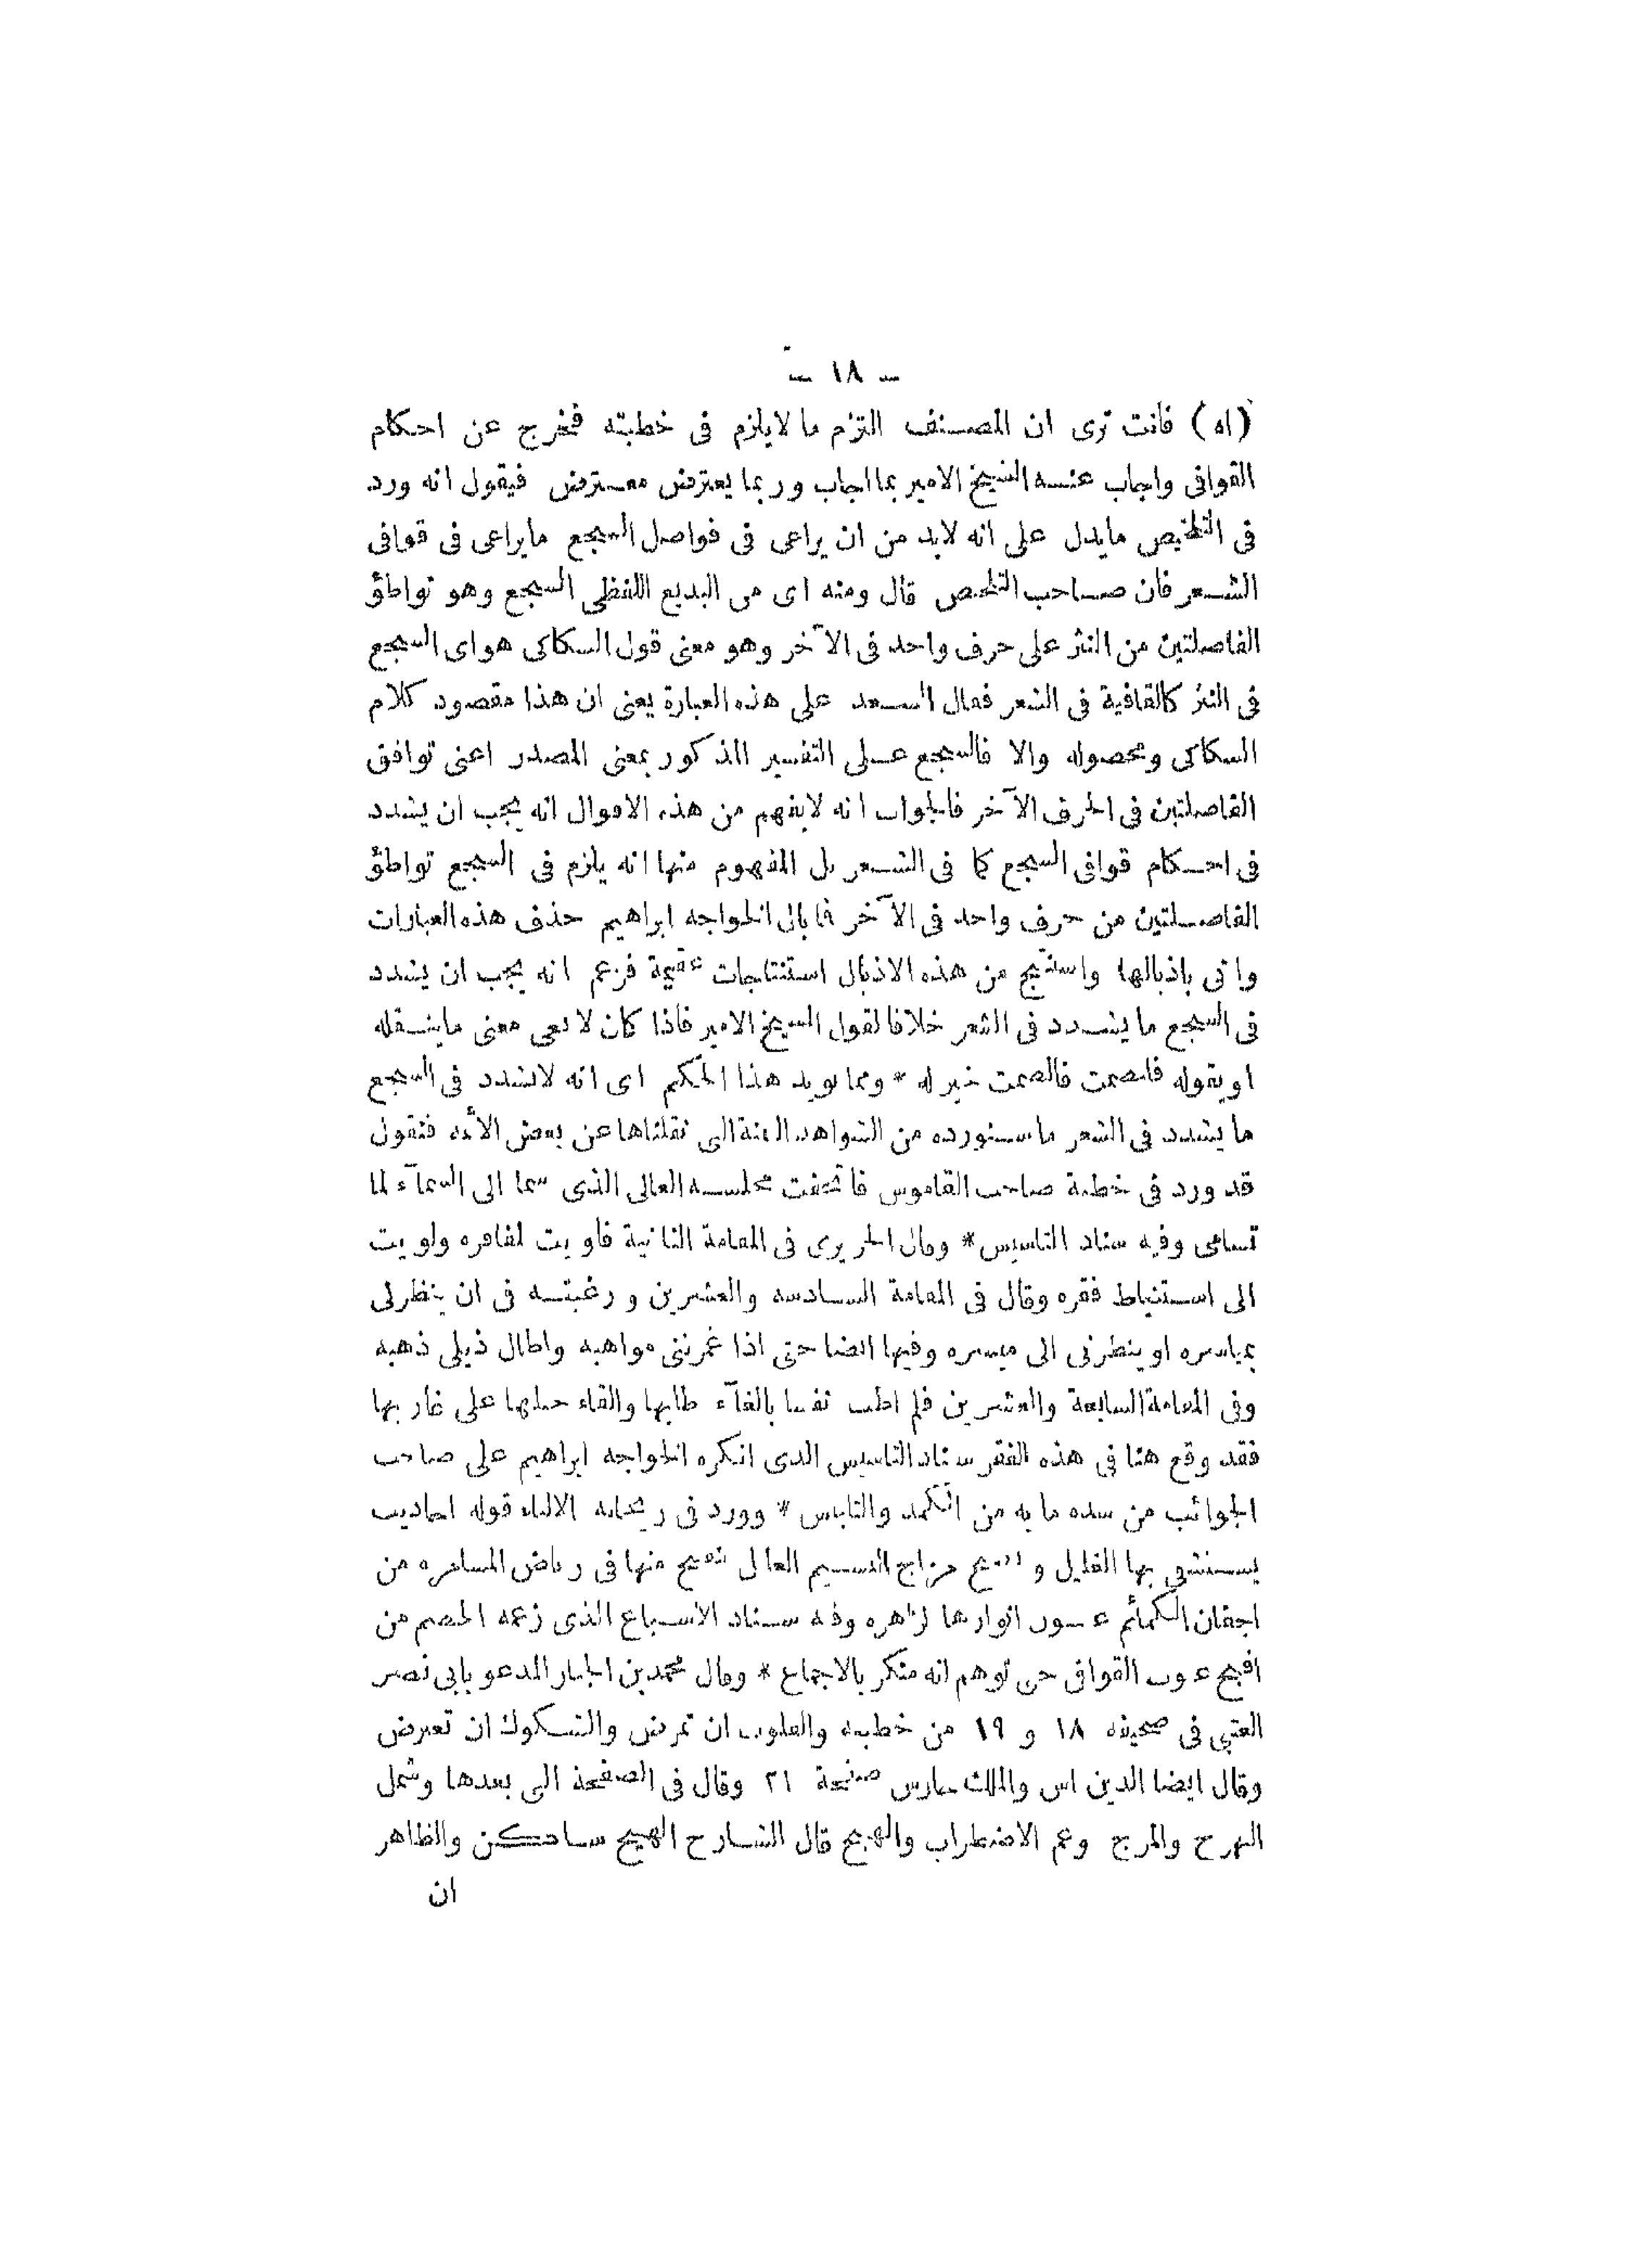 ـ ١٨ ـ
(اه) فانت ترى ان المصنف التزم ما لايلزم فى خطبته فخرج عن احكام
القوافى واجاب عنه الشيخ الامير بما اجاب وربما يعترض معترض فيقول انه ورد
فى التلخيص مايدل على انه لابد من ان يراعى فى فواصل السجع مايراعى فى قوافى
الشعر فان صاحب التلخيص قال ومنه اى من البديع اللفظى السجع وهو تواطؤ
الفاصلتين من النثر على حرف واحد فى الآخر وهو معنى قول السكاكى هو اى السجع
فى النثر كالقافية فى الشعر فقال السعد على هذه العبارة يعنى ان هذا مقصود كلام
السكاكى ومحصوله والا فالسجع على التفسير المذكور بمعنى المصدر اعنى توافق
الفاصلتين فى الحرف الآخر فالجواب انه لايفهم من هذه الاقوال انه يجب ان يشدد
فى احكام قوافى السجع كما فى الشعر بل المفهوم منها انه يلزم فى السجع تواطؤ
الفاصلتين من حرف واحد فى الآخر فما بال الخواجه ابراهيم حذف هذه العبارات
واتى باذيالها واستنتج من هذه الاذيال استنتاجات عقيمة فزعم انه يجب ان يشدد
فى السجع ما يشدد فى الشعر خلافا لقول الشيخ الامير فاذا كان لا يعى معنى ماينقله
او يقوله فليصمت فالصمت خير له * ومما يويد هذا الحكم اى انه لايشدد فى السجع
ما يشدد فى الشعر ما سنورده من الشواهد التى نقلناها عن بعض الأئمه فنقول
قد ورد فى خطبة صاحب القاموس فاتحفت مجلسه العالى الذى سما الى السمآء لما
تسامى وفيه سناد التاسيس * وقال الحريرى فى المقامة الثانية فاويت لمفاقره ولويت
الى استنباط فقره وقال فى المقامة السادسه والعشرين ورغبته فى ان ينظر لى
بمياسره او ينظرنى الى ميسره وفيها ايضا حتى اذا غمرتنى مواهبه واطال ذيلى ذهبه
وفى المقامة السابعة والعشرين فلم اطب نفسا بالغآء طلبها والقاء حبلها على غاربها
فقد وقع هنا فى هذه الفقر سناد التاسيس الذى انكره الخواجه ابراهيم على صاحب
الجوائب من شده ما به من الكمد والتاييس * وورد فى ريحانه الالباء قوله احاديث
يستشفى بها الغليل و مزاج النسيم العالى منها فى رياض المسامره من
اجفان الكمائم عيون انوارها لزاهره وفيه سناد الاشباع الذى زعمه الخصم من
اقبح عيوب القوافى حتى توهم انه منكر بالاجماع * وقال محمد بن الجبار المدعو بابى نصر
العتبى فى صحيفه ١٨ و ١٩ من خطبته والقلوب ان تمرض والشكوك ان تعترض
وقال ايضا الدين اس والملك حارس صفحة ٢١ وقال فى الصفحة التى بعدها وشمل
الهرج والمرج وعم الاضطراب والهيج قال الشارح الهيج ساكن والظاهر
ان